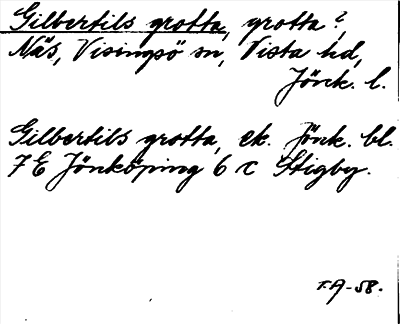 Gilbertils grotta, grotta?
Näs, Visingsö sn, Vista hd,
Jönk. l.
Gilbertils grotta, ek. Jönk. bl.
7 E Jönköping 6 c Stigby.
T.A-58.